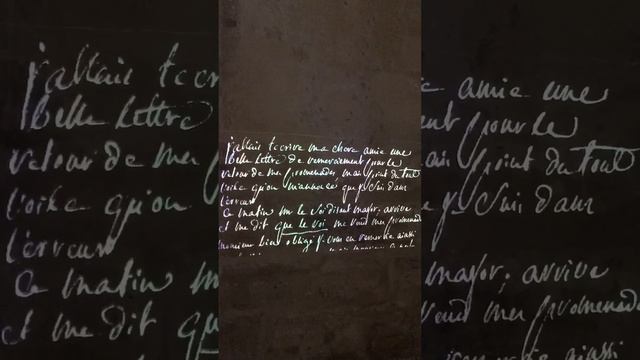 j'allais t'ecrire ma chere amie une
belle Lettre de remerciement pour le
retour de mes promenades, mais point du tout
voila qu'on m'annonce que j'etais dans
l'erreur
ce matin mr le soi disant major, arrive
et me dit que le roi me rend mes promenades
monsieur bien obligé je vous en remercie aussi